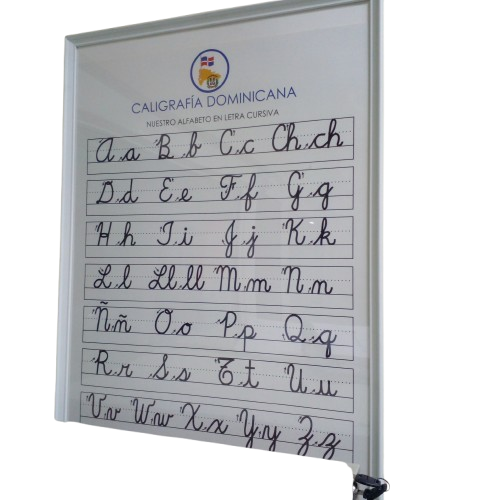 CALIGRAFÍA DOMINICANA
NUESTRO ALFABETO EN LETRA CURSIVA
A a B b C c Ch ch
D d E e F f G g
H h I i J j K k
L l Ll ll M m N n
Ñ ñ O o P p Q q
R r S s T t U u
V v W w X x Y y Z z